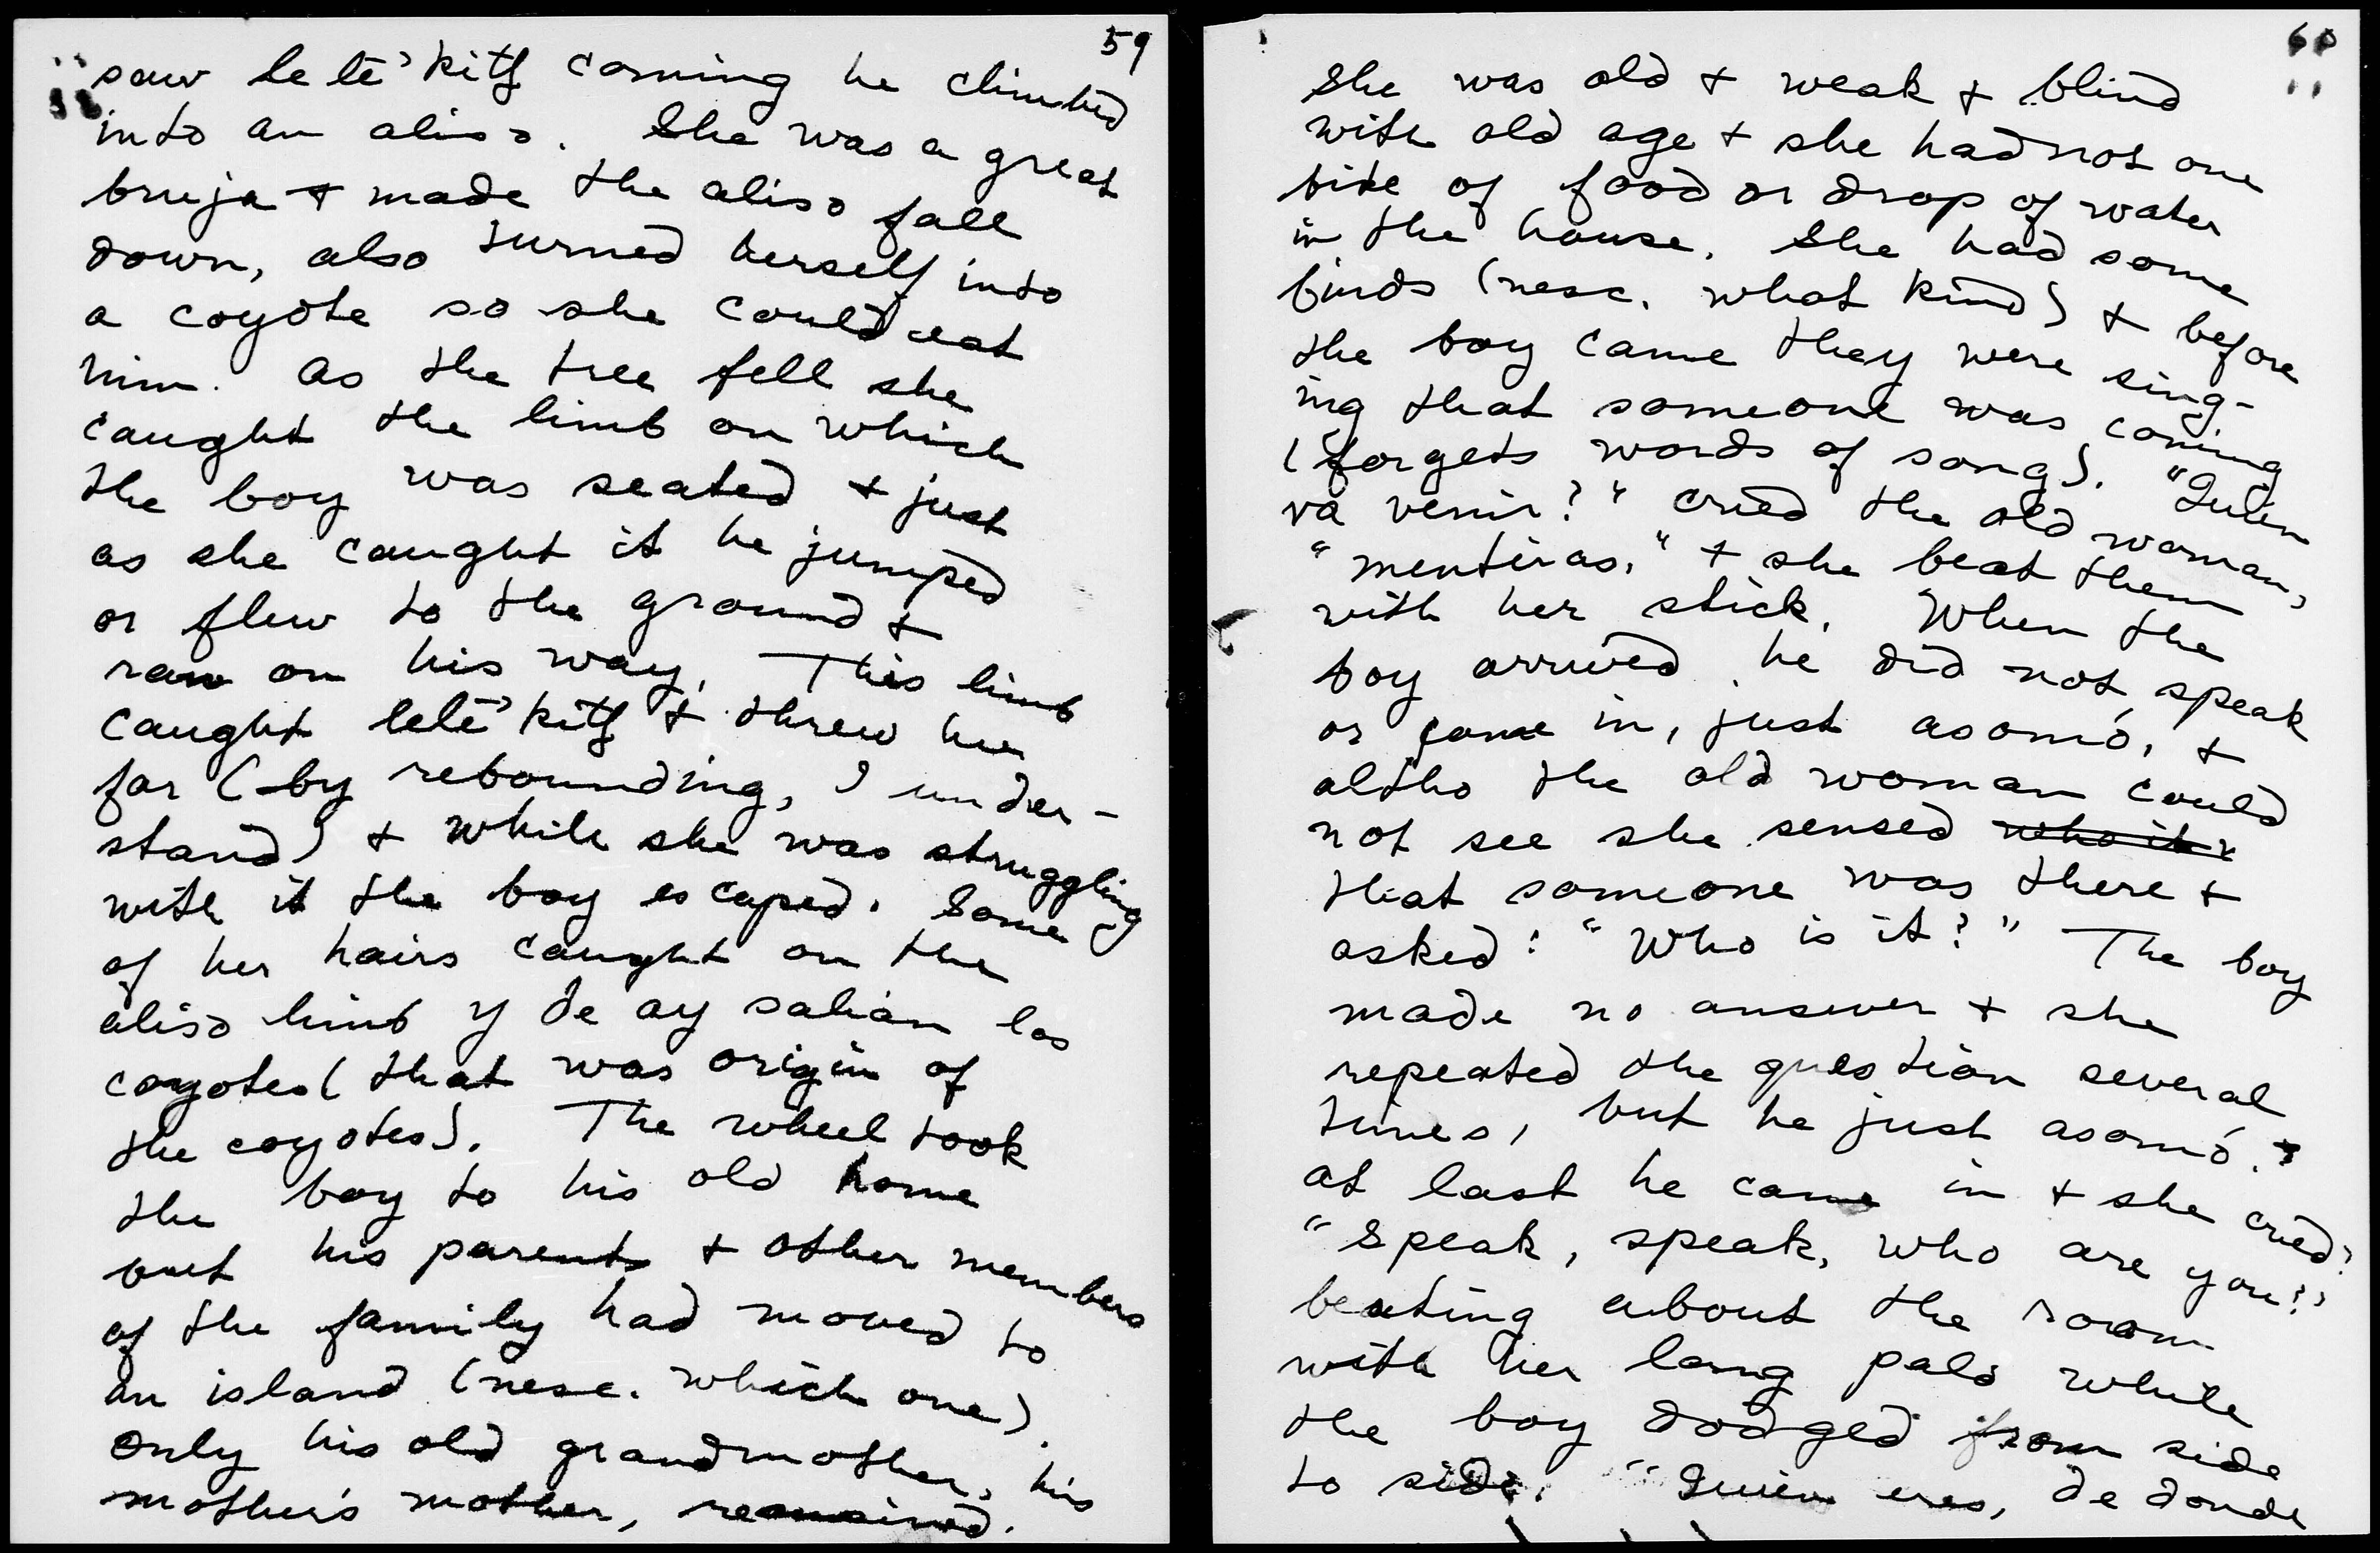 59
saw le lē'kitʃ coming he climbed
into an aliso. She was a great
bruja + made the aliso fall
down, also turned herself into
a coyote so she could eat
him. As the tree fell she
caught the limb on which
the boy was seated + just
as she caught it he jumped
or flew to the ground +
ran on his way. This limb
caught lelē'kitʃ + threw her
far (by rebounding, I under-
stand) + while she was struggling
with it the boy escaped. Some
of her hairs caught on the
aliso limb y de ay salían los
coyotes (that was origin of
the coyotes). The wheel took
the boy to his old home
but his parents + other members
of the family had moved to
an island (nesc. which one).
Only his old grandmother, his
mother's mother, remained.
60
She was old + weak + blind
with old age + she had not one
bite of food or drop of water
in the house. She had some
birds (nesc. what kind) + before
the boy came they were sing-
ing that someone was coming
(forgets words of song). "Quien
va venir?" cried the old woman,
"mentiras," + she beat them
with her stick. When the
boy arrived he did not speak
or come in, just asomó, +
altho the old woman could
not see she sensed who it
that someone was there +
asked: "Who is it?" The boy
made no answer + she
repeated the question several
times, but he just asomó.
At last he came in + she cried:
"Speak, speak, who are you?"
beating about the room
with her long palo while
the boy dodged from side
to side. "Quien eres, de donde